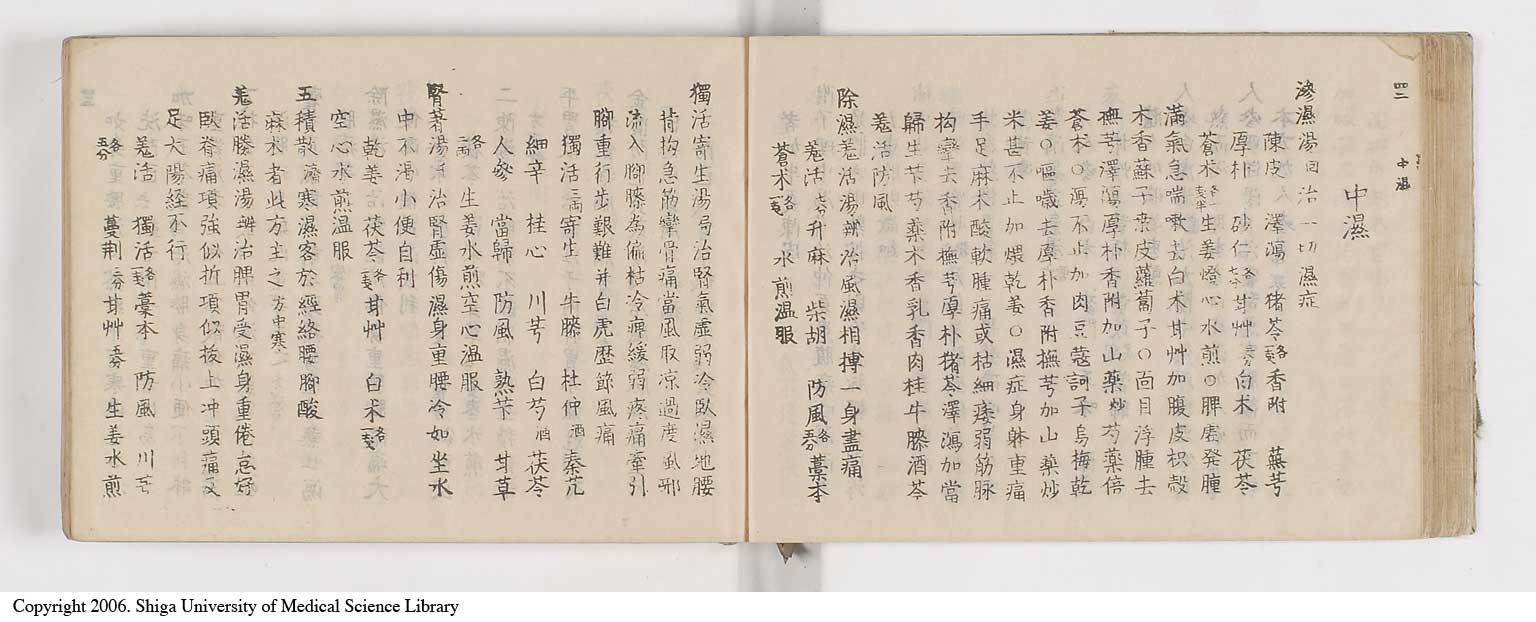 四二 中濕
中濕
滲濕湯回治一切濕症
陳皮 澤瀉 猪苓各一戔香附 蕪芎
厚朴 砂仁各七分甘艸三分白朮 茯苓
蒼朮各一戔半生姜燈心水煎〇脾虚発腫
満氣急喘嗽去白朮甘艸加腹皮枳殻
木香蘇子桒皮蘿蔔子〇面目浮腫去
撫芎澤瀉厚朴香附加山藥炒芍藥倍
蒼朮〇瀉不止加肉豆蔻訶子烏梅乾
姜〇嘔噦去厚朴香附撫芎加山藥炒
米甚不止加煨乾姜〇濕症身躰重痛
手足麻木酸軟腫痛或枯細痿弱筋脉
拘攣去香附撫芎厚朴猪苓澤瀉加當
歸生芐芍藥木香乳香肉桂牛膝酒芩
羗活防風
除濕羗活湯辨治風濕相搏一身盡痛
羗活七分升麻 柴胡 防風各五分藁本
蒼朮各一戔水煎温服
獨活寄生湯局治腎氣虚弱冷臥濕地腰
背拘急筋攣骨痛當風取凉過度風邪
流入脚膝為偏枯冷痺緩弱疼痛牽引
脚重行歩艱難并白虎歴節風痛
獨活三両寄生 牛膝 杜仲酒秦艽
細辛 桂心 川芎 白芍酒茯苓
人參 當歸 防風 熟芐 甘草
各二両生姜水煎空心温服
腎著湯 治腎虚傷濕身重腰冷如坐水
中不渇小便自利
乾姜 茯苓各一戔甘艸 白朮各一戔
空心水煎温服
五積散 寒濕客於經絡腰脚酸
麻木者此方主之方中寒
羗活勝濕湯辨治脾胃受濕身重倦怠好
臥脊痛項強似折項似抜上冲頭痛及
足太陽経不行
羗活 獨活各一戔藁本 防風 川芎
各五分蔓荆三分甘艸五分生姜水煎
Copyright 2006. Shiga University of Medical Science Library